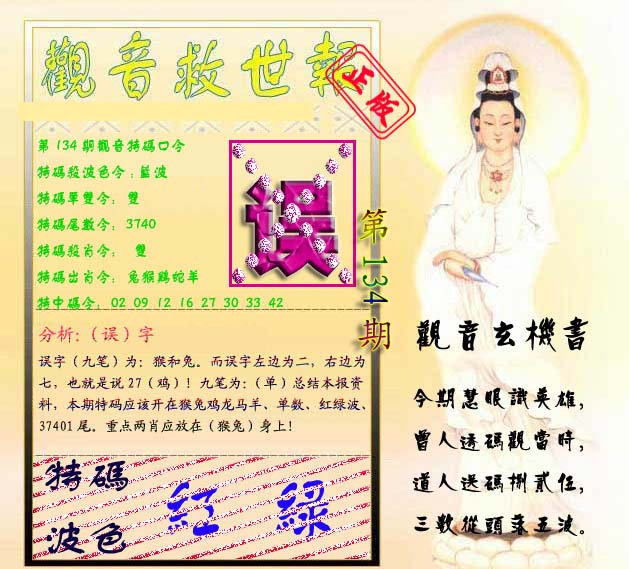 觀音救世報
正版
第134期觀音特碼口令
特碼殺波色令：藍波
特碼單雙令： 雙
特碼尾數令： 3740
特碼殺肖令： 雙
特碼出肖令： 兔猴鷄蛇羊
特中碼令： 02 09 12 16 27 30 33 42
误
第134期
分析：（误）字
误字（九笔）为：猴和兔。而误字左边为二，右边为
七，也就是说27（鸡）！九笔为：（单）总结本报资
料，本期特码应该开在猴兔鸡龙马羊、单数、红绿波、
37401尾。重点两肖应放在（猴兔）身上！
特碼
波色
紅 綠
觀音玄機書
今期慧眼識英雄，
曾人透碼觀當時，
道人送碼捌貳伍，
三數從頭落五波。